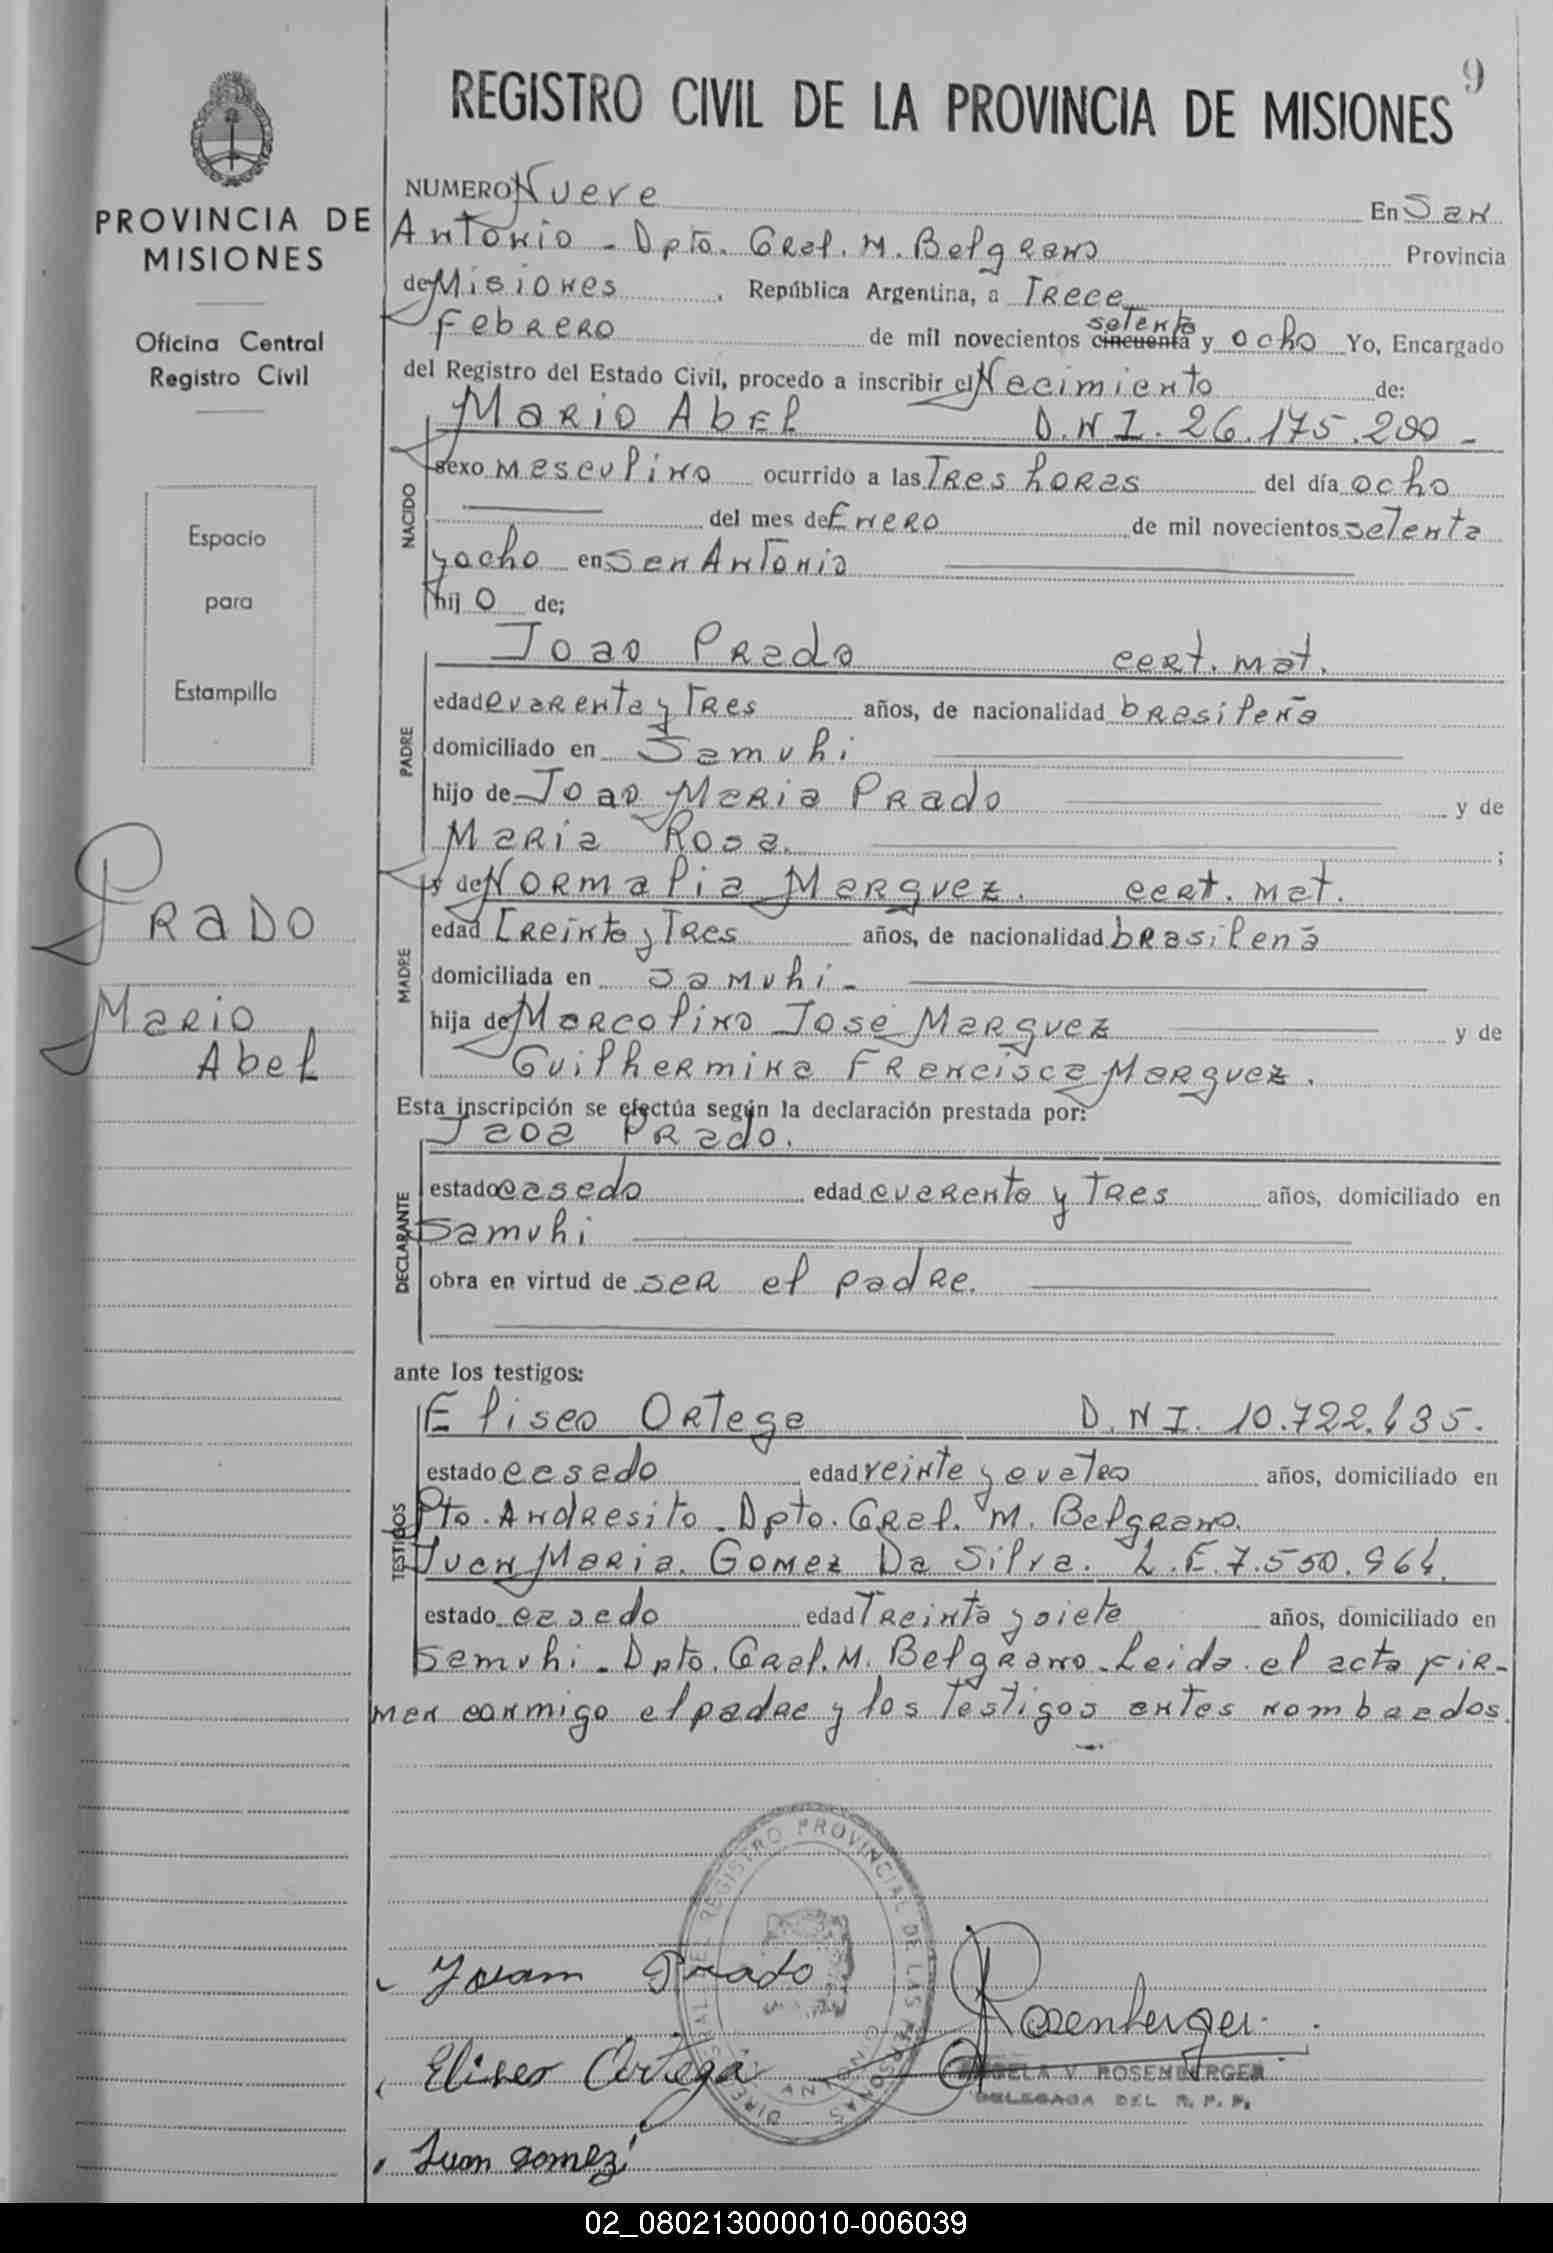 9
REGISTRO CIVIL DE LA PROVINCIA DE MISIONES
PROVINCIA DE
MISIONES
Oficina Central
Registro Civil
Espacio
para
Estampilla
PRADO
Mario
Abel
NUMERO Nueve En San
Antonio - Dpto. Gral. M. Belgrano Provincia
de Misiones, República Argentina, a Trece
Febrero de mil novecientos cincuenta setenta y ocho Yo, Encargado
del Registro del Estado Civil, procedo a inscribir el Nacimiento de:
NACIDO
Mario Abel D.N.I. 26.175.200 -
sexo masculino ocurrido a las Tres horas del día ocho
del mes de Enero de mil novecientos setenta
y ocho en San Antonio
hijo de;
PADRE
Joao Prado cert. mat.
edad cuarenta y Tres años, de nacionalidad brasileña
domiciliado en Samuhi
hijo de Joao Maria Prado y de
Maria Rosa. ;
MADRE
y de Normalia Marquez. cert. mat.
edad Treinta y Tres años, de nacionalidad brasileña
domiciliada en Samuhi -
hija de Marcolino José Marquez y de
Guilhermina Francisca Marquez.
Esta inscripción se efectúa según la declaración prestada por:
DECLARANTE
Jaoa Prado.
estado casado edad cuarenta y Tres años, domiciliado en
Samuhi
obra en virtud de ser el padre.
ante los testigos:
TESTIGOS
Eliseo Ortega D.N.I. 10.722.435.
estado casado edad veinte y cuatro años, domiciliado en
Pto. Andresito - Dpto. Gral. M. Belgrano.
Juan Maria Gomez Da Silva. L.E. 7.550.964.
estado casado edad Treinta y siete años, domiciliado en
Samuhi - Dpto. Gral. M. Belgrano - Leida el acta fir-
man conmigo el padre y los Testigos antes nombrados.
Joam Prado
Rosenberger
Eliseo Ortega
ANGELA V. ROSENBERGER
DELEGADA DEL R. P. P.
Juan Gomez
DIRECCION GENERAL DEL REGISTRO PROVINCIAL DE LAS PERSONAS
02_080213000010-006039